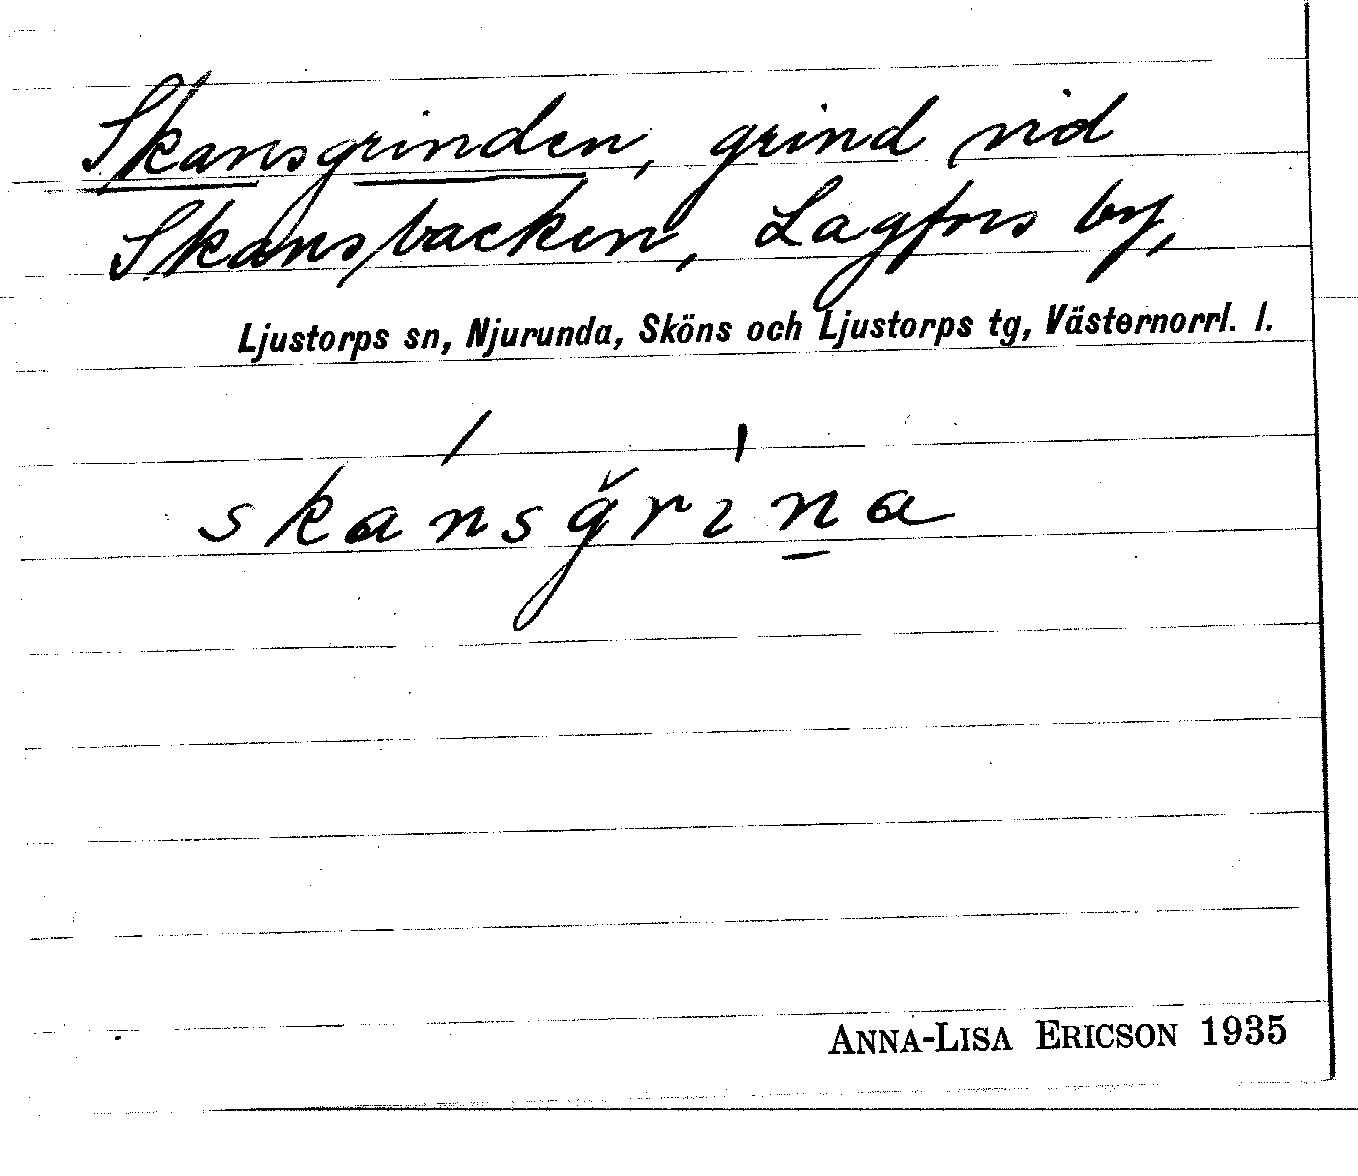 Skansgrinden, grind vid
Skansbacken, Lagfors by,
Ljustorps sn, Njurunda, Sköns och Ljustorps tg, Västernorrl. l.
skansgrina
ANNA-LISA ERICSON 1935